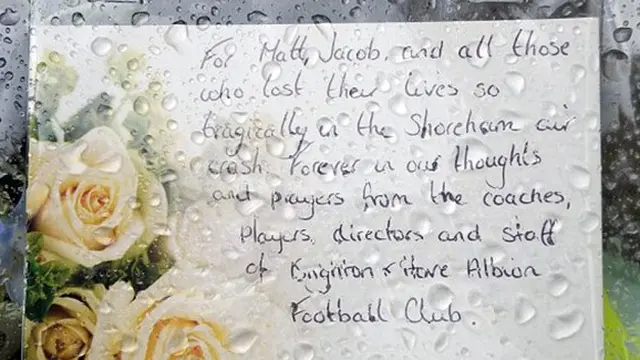 For Matt, Jacob, and all those
who lost their lives so
tragically in the Shoreham air
crash. Forever in our thoughts
and prayers from the coaches,
players, directors and staff
of Brighton & Hove Albion
Football Club.